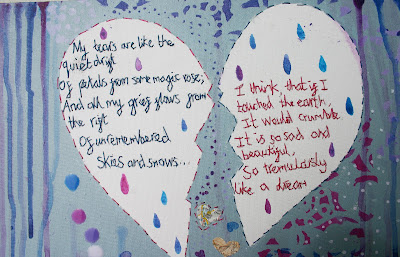 My tears are like the
quiet drift
Of petals from some magic rose;
And all my grief flows from
the rift
Of unremembered
Skies and snows...
I think, that if I
touched the earth,
It would crumble
It is so sad and
beautiful,
So tremulously
like a dream